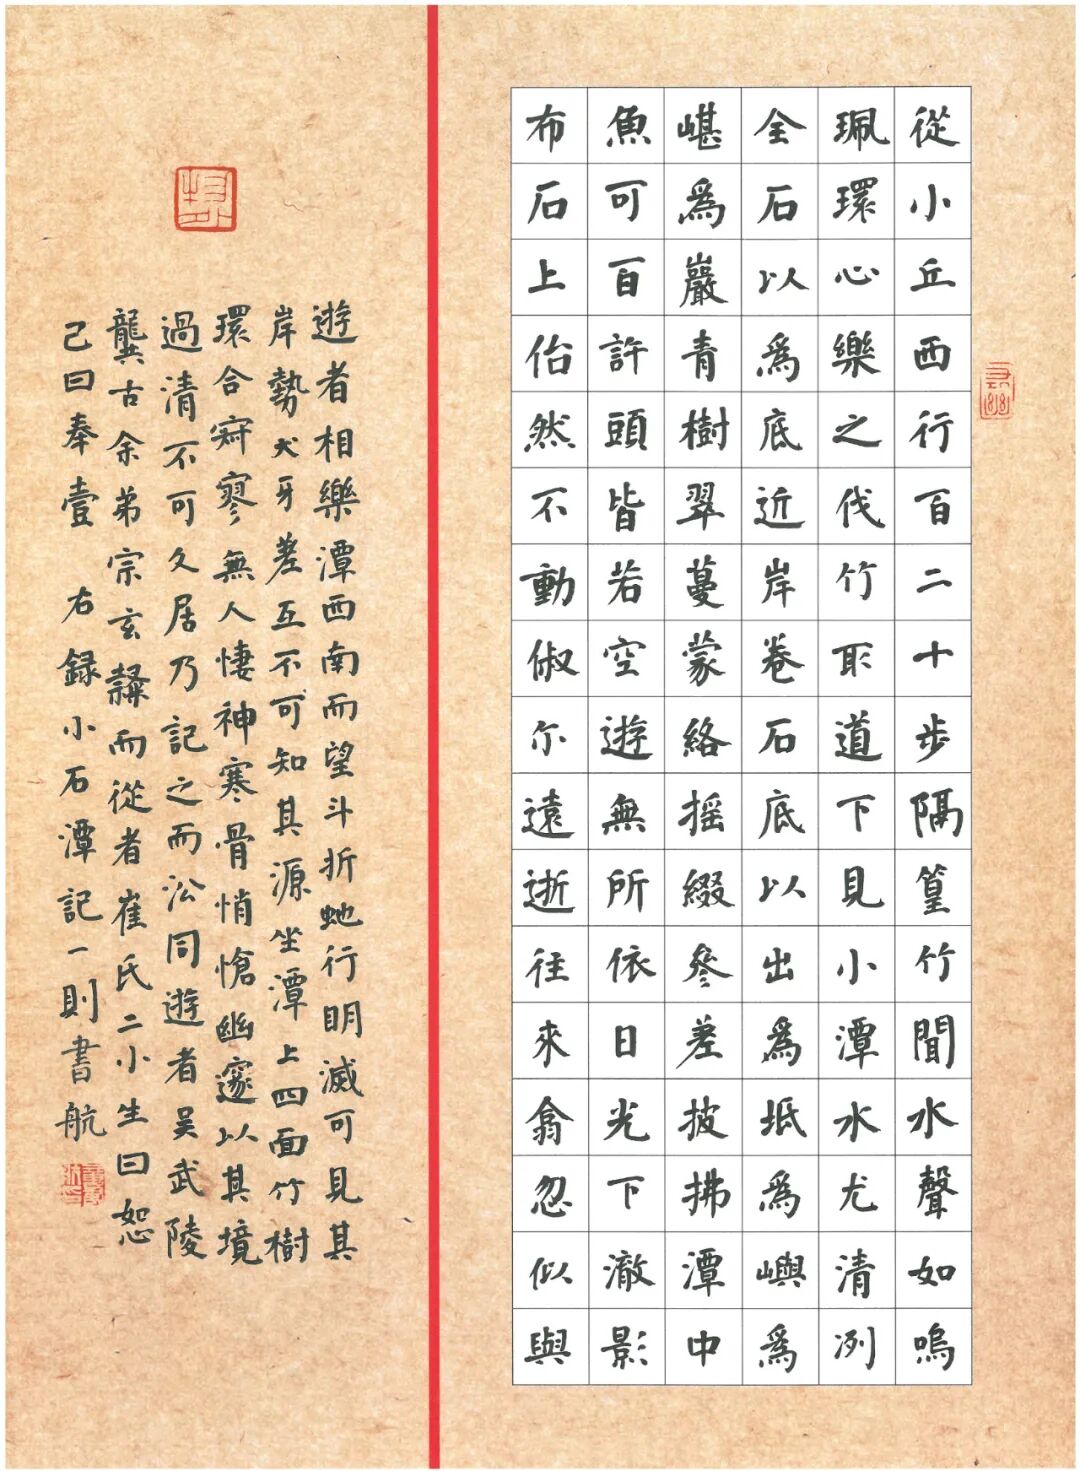 從小丘西行百二十步隔篁竹聞水聲如鳴
珮環心樂之伐竹取道下見小潭水尤清冽
全石以爲底近岸卷石底以出爲坻爲嶼爲
嵁爲巖青樹翠蔓蒙絡摇綴參差披拂潭中
魚可百許頭皆若空遊無所依日光下澈影
布石上佁然不動俶尔遠逝往來翕忽似與
遊者相樂潭西南而望斗折虵行明滅可見其
岸勢犬牙差互不可知其源坐潭上四面竹樹
環合寂寥無人悽神寒骨悄愴幽邃以其境
過清不可久居乃記之而去同遊者吴武陵
龔古余弟宗玄隸而從者崔氏二小生曰恕
己曰奉壹 右録小石潭記一則書航